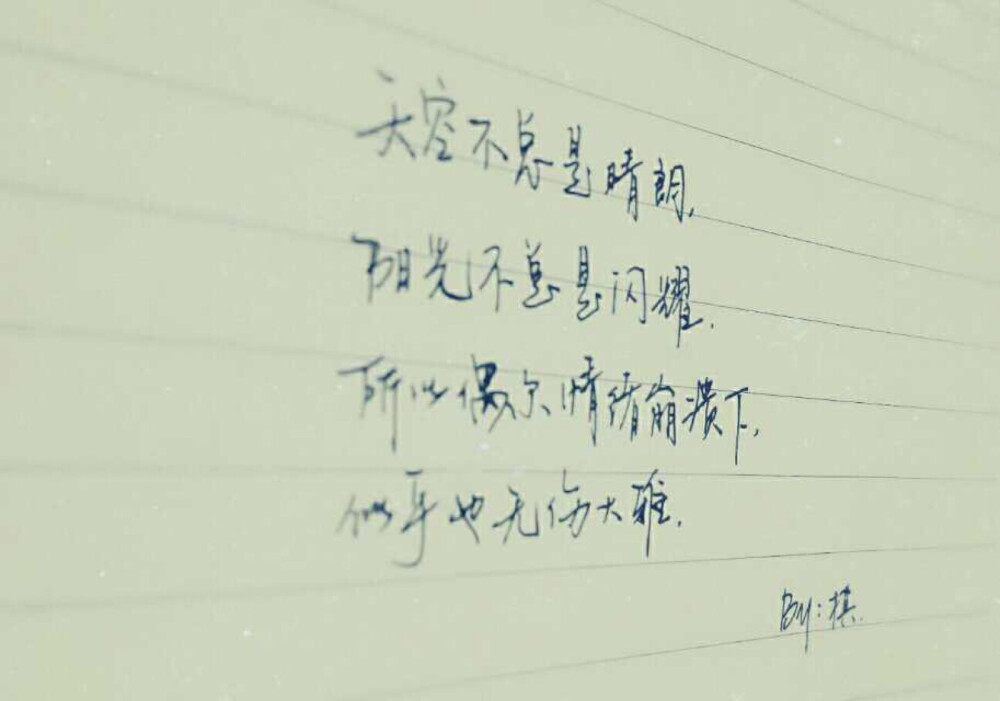 天空不总是晴朗,
阳光不总是闪耀.
所以偶尔情绪崩溃下,
似乎也无伤大雅.
By:棋.